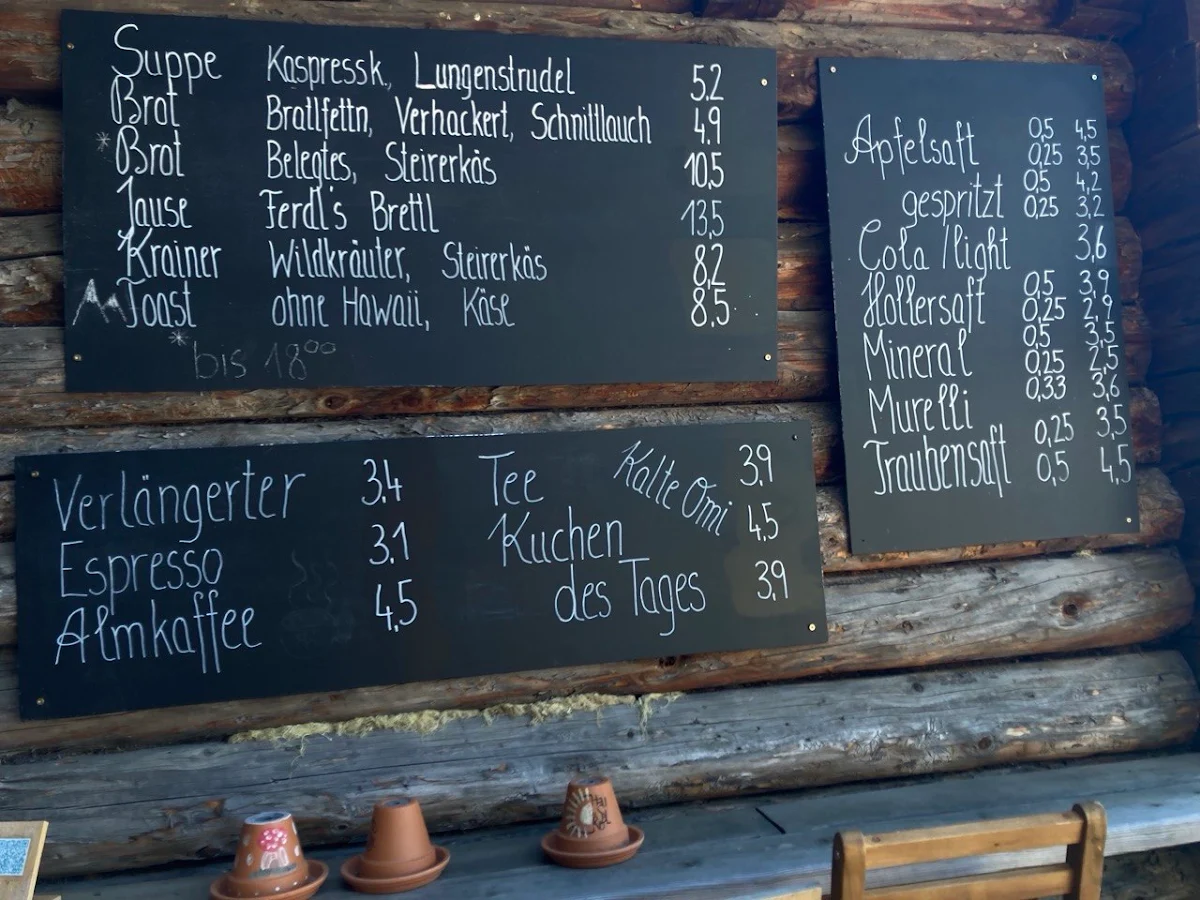 Suppe Kaspressk., Lungenstrudel 5,2
Brot Bratlfettn, Verhackert, Schnittlauch 4,9
* Brot Belegtes, Steirerkäs 10,5
Jause Ferdl's Brettl 13,5
Krainer Wildkräuter, Steirerkäs 8,2
Toast ohne Hawaii, Käse 8,5
* bis 18⁰⁰
Apfelsaft 0,5 4,5
0,25 3,5
gespritzt 0,5 4,2
0,25 3,2
Cola /light 3,6
Hollersaft 0,5 3,9
0,25 2,9
Mineral 0,5 3,5
0,25 2,5
Murelli 0,33 3,6
Traubensaft 0,25 3,5
0,5 4,5
Verlängerter 3,4
Espresso 3,1
Almkaffee 4,5
Tee 3,9
Kalte Omi 4,5
Kuchen
des Tages 3,9